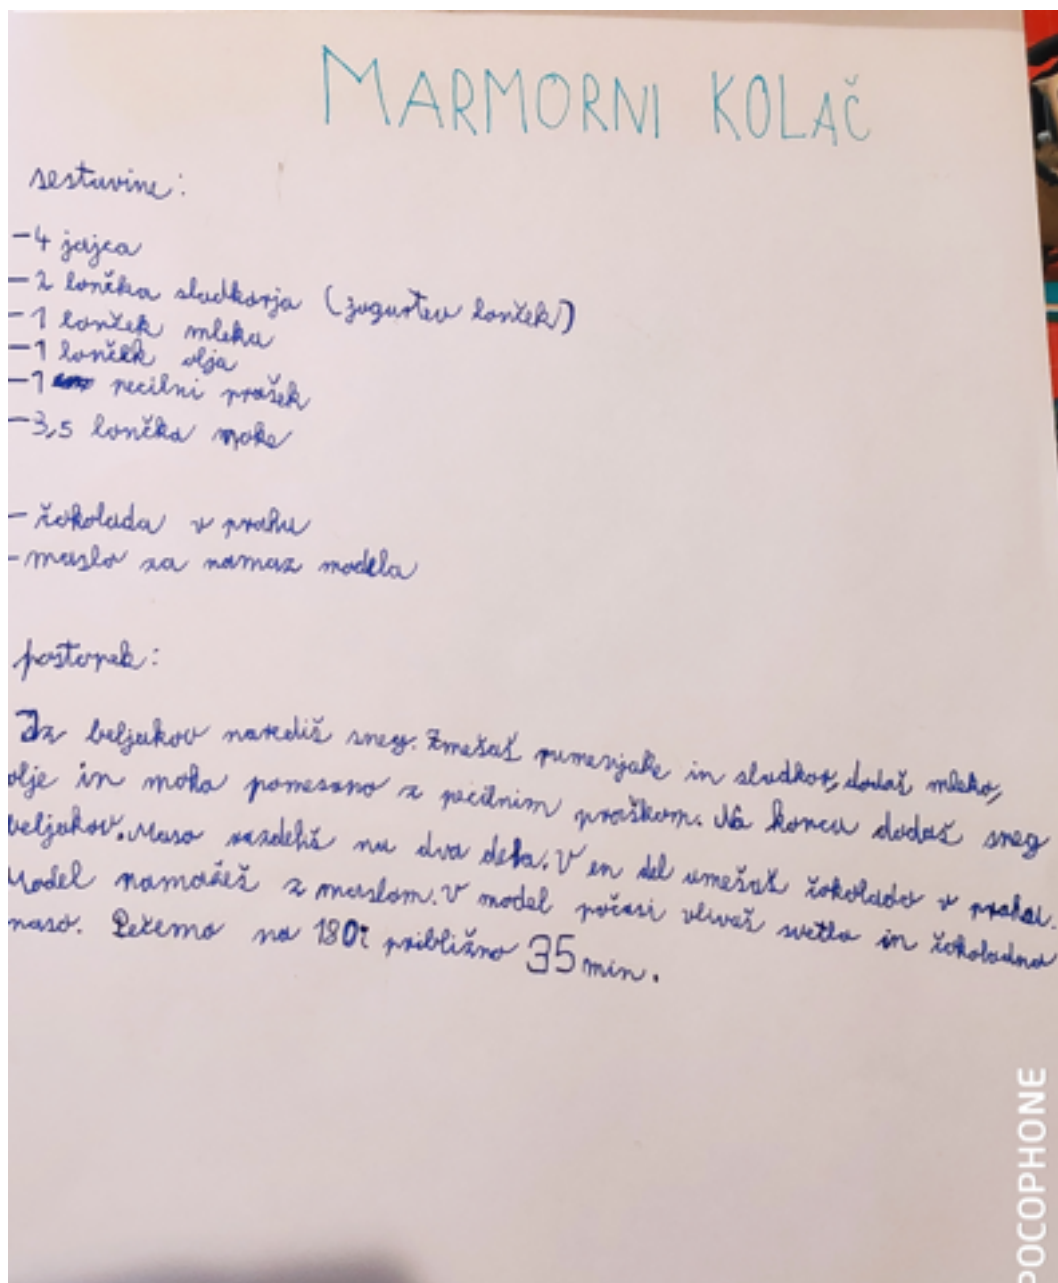 MARMORNI KOLAČ
sestavine:
-4 jajca
-2 lončka sladkorja (jogurtov lonček)
-1 lonček mleka
-1 lonček olja
-1 pecilni prašek
-3,5 lončka moke
-čokolada v prahu
-maslo za namaz modela
postopek:
Iz beljakov narediš sneg. Zmešaš rumenjake in sladkor, dodaš mleko,
olje in moka pomesano z pecilnim praškom. Na koncu dodaš sneg
beljakov. Maso razdeliš na dva dela. V en del umešaš čokolado v prahu.
Model namažeš z maslom. V model počasi vlivaš svetlo in čokoladno
maso. Pečemo na 180° približno 35 min.
POCOPHONE